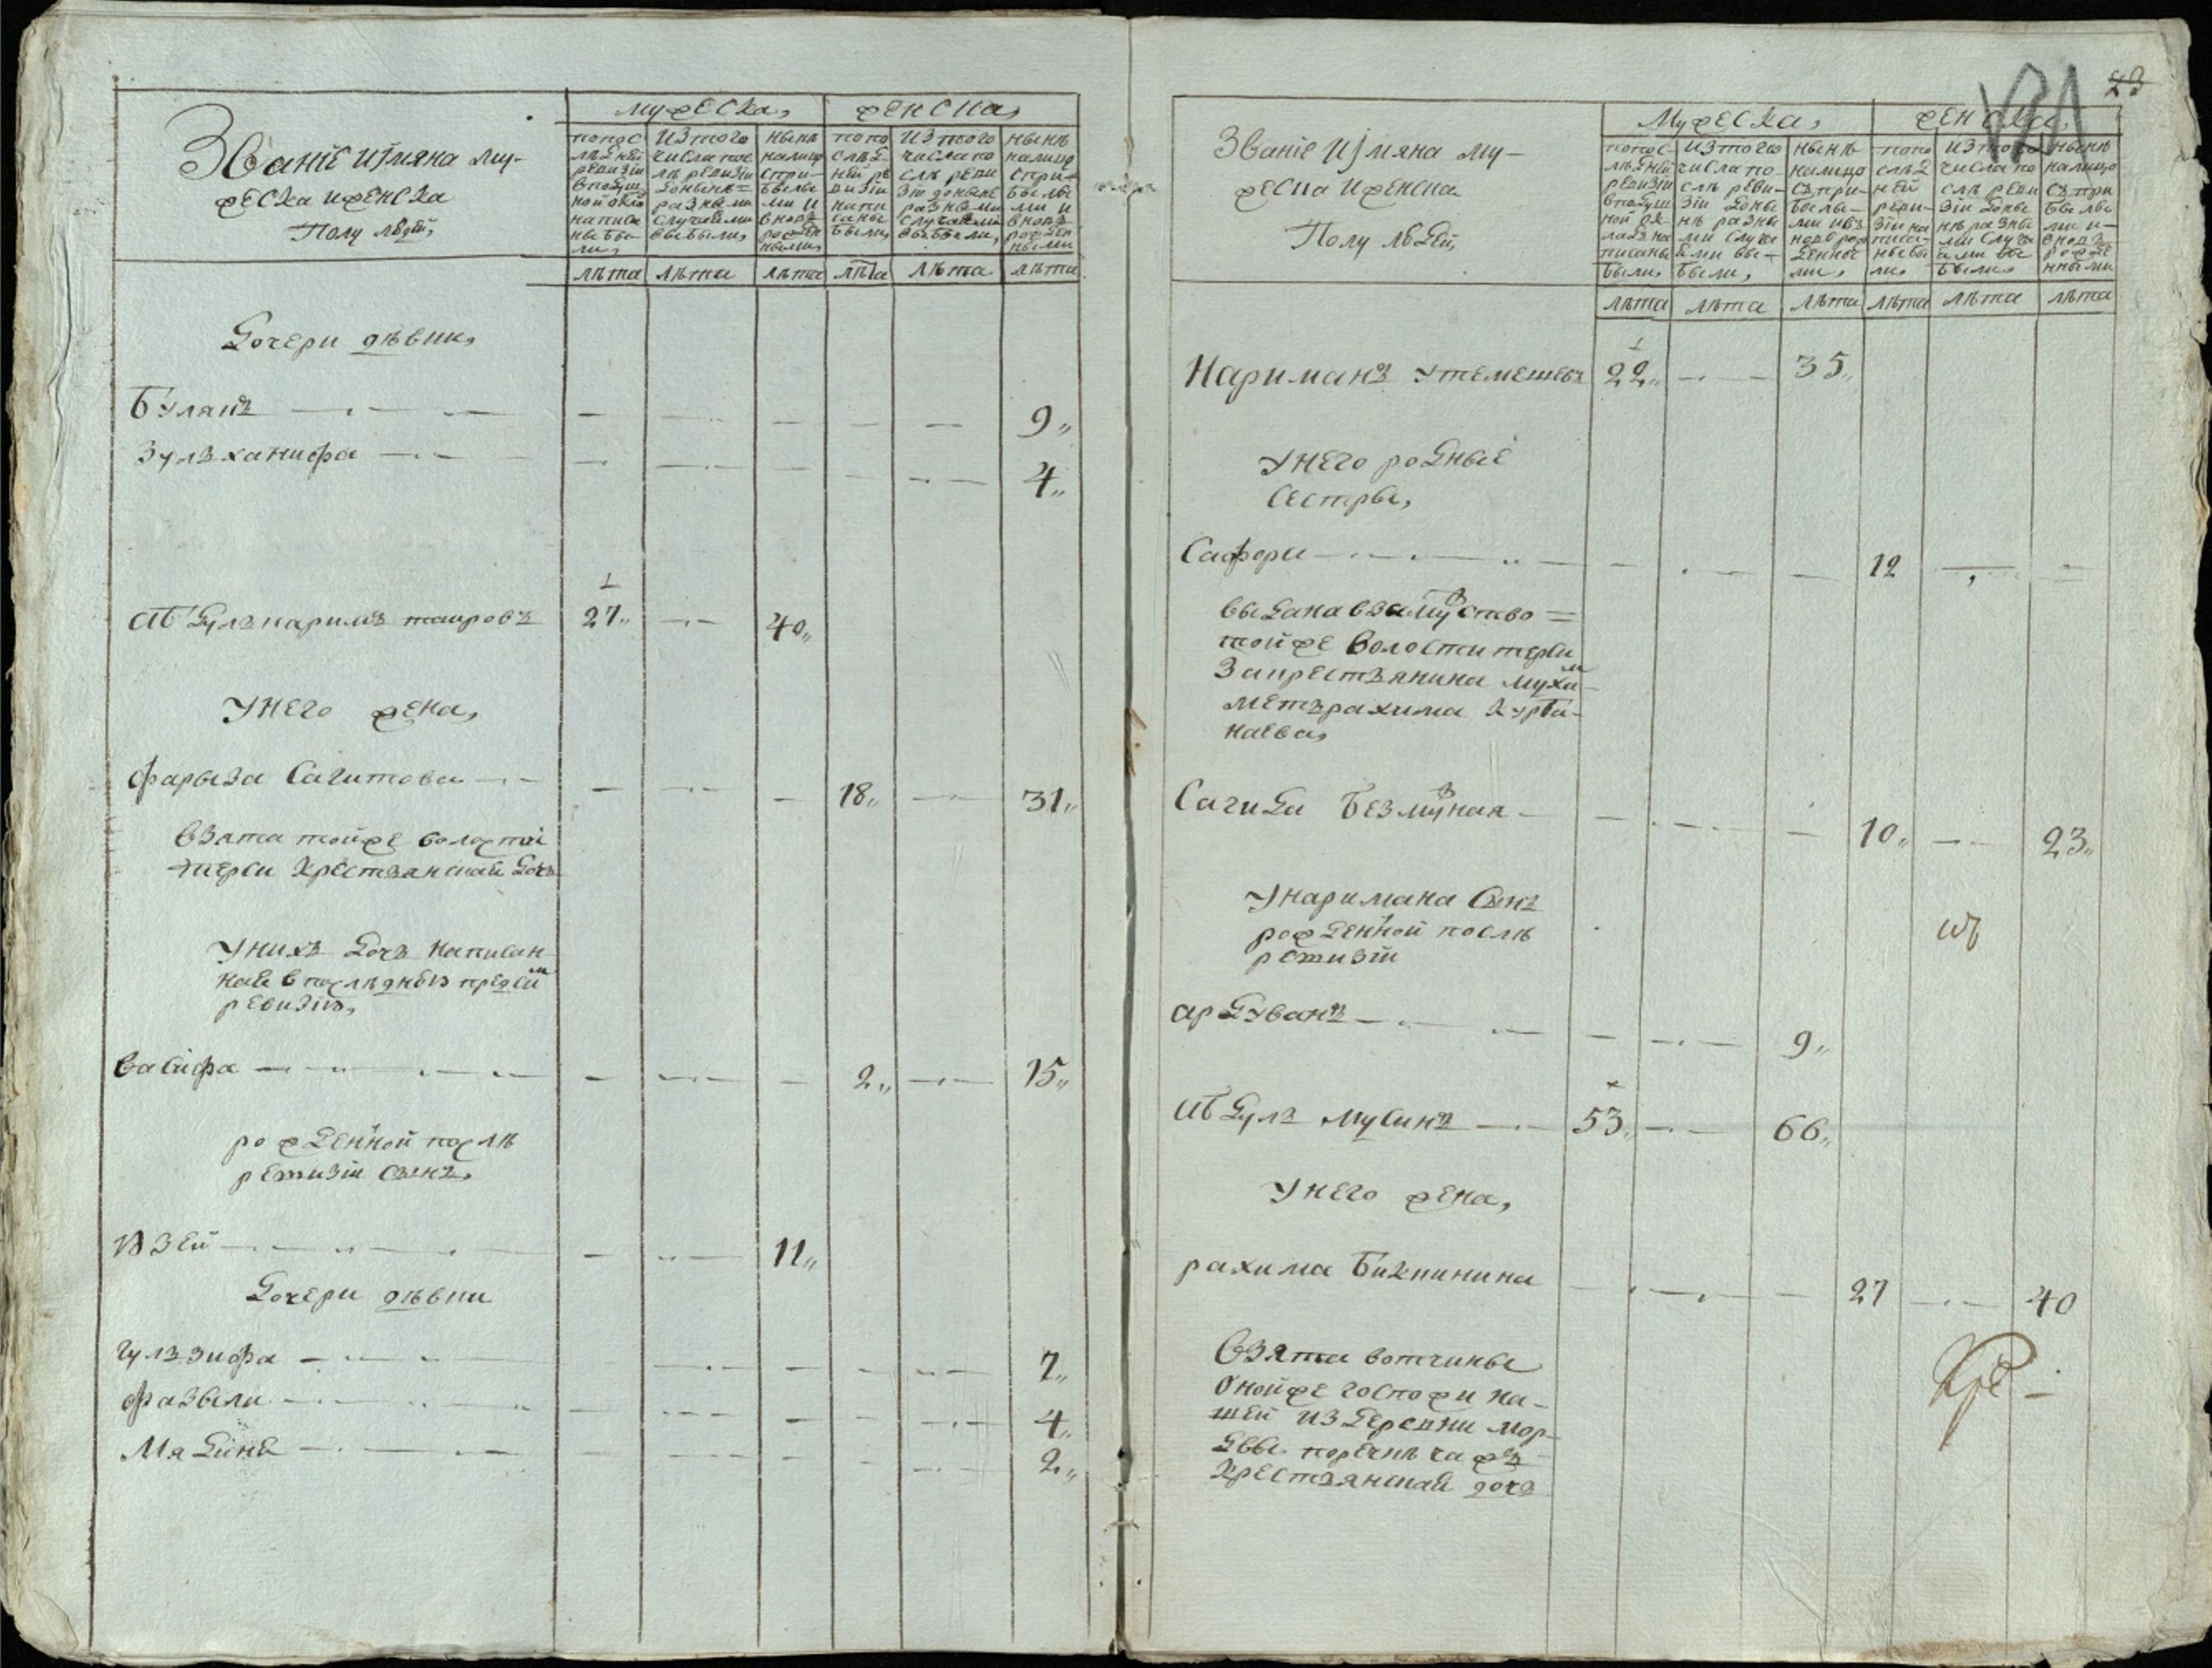 Званіе и імяна му-
жеска и женска
Полу людей,
мужеска,
женска,
попос
лѣдней
ревизіи
в подуш
ной окла
написа
ны бы
ли,
из того
числа пос
лѣ ревизіи
доныне=
разными
случаями
выбыли,
нынѣ
налицо
с при-
былы
ми и
вновь
рожден
ными,
по по
слѣд-
ней ре
визіи
напи
саны
были,
из того
числа по
слѣ реви
зіи доныне
разными
случаями
выбыли,
нынѣ
налицо
с при-
былы
ми и
вновь
рожден
ными
лѣта
лѣта
лѣта
лѣта
лѣта
лѣта
Дочери дѣвки,
Буляпъ
9,,
Зулъханифа
4,,
1
Абдулъкаримъ таировъ 27,, 40,,
У него жена,
Фарыза Сагитова 18,, 31,,
взята тойже волости
терси крестьянская дочь
У нихъ дочь написан
ная в последнею пред сим
ревизію,
Васифа 2,, 15,,
рожденной послѣ
ревизіи сынъ,
Юзей 11,,
Дочери дѣвки
Гулъзифа 7,,
Фазыли 4,,
Мядиня 2,,
23
Званіе и імяна му-
жеска и женска
Полу людей,
Мужеска,
женска,
попос-
лѣдней
ревизіи
в подуш
ной ок
лад на
писаны
были,
из того
числа по
слѣ реви-
зіи доны
нѣ разны
ми случа
ями вы-
были,
нынѣ
налицо
съ при-
былы-
ми и в
новь рож
денны
ми,
по по
слѣд
ней
реви-
зіи на
писа-
ны бы
ли,
из того
числа по
слѣ реви
зіи доны
нѣ разны
ми случа
ями вы
были,
нынѣ
налицо
съ при
былы
ми и-
вновь
рожде
нными
лѣта
лѣта
лѣта
лѣта
лѣта
лѣта
1
Нариманъ Утемешевъ 22,, 35,,
У него родные
сестры,
Сафори 12
выдана в замужство=
тойже волости терси
за крестьянина Мухам-
метърахима Курба-
наева,
Сагида Безмужная 10,, 23,,
У наримана сынъ
рожденной послѣ
ревизіи
Ардуванъ 9,,
Абдулъ Мусинъ 53,, 66,,
У него жена,
рахима Бикинина 27 40
Взята вотчины
оной же госпожи на-
шей из деревни мор-
двы
крестьянская дочь